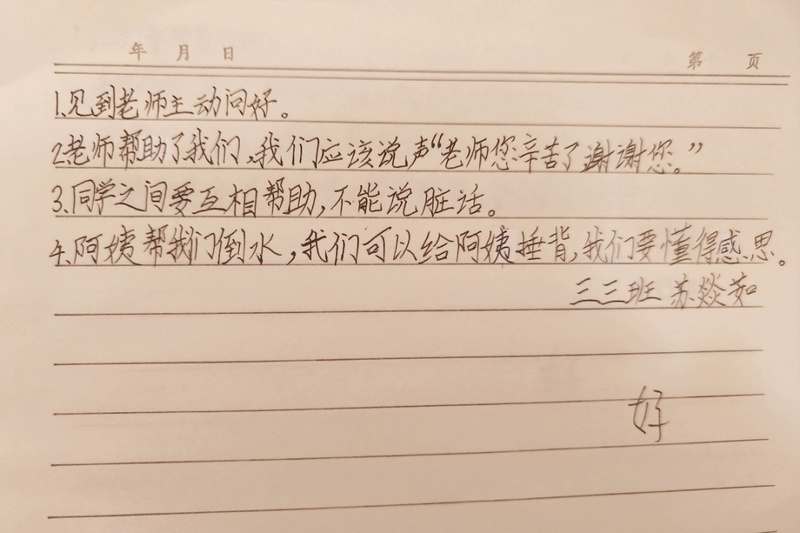 年 月 日 第 页
1.见到老师主动问好。
2.老师帮助了我们,我们应该说声“老师您辛苦了谢谢您。”
3.同学之间要互相帮助,不能说脏话。
4.阿姨帮我们倒水,我们可以给阿姨捶背,我们要懂得感恩。
三三班 苏燚茹
好